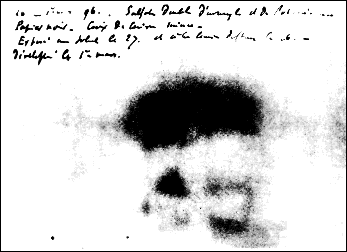 96. Sulfate Double D'uranyle et de Potassium
Papier noir. Croix de Cuivre mince -
Exposé au soleil le 27. et à la lumière diffuse le 26 -
Développé le 1er mars.